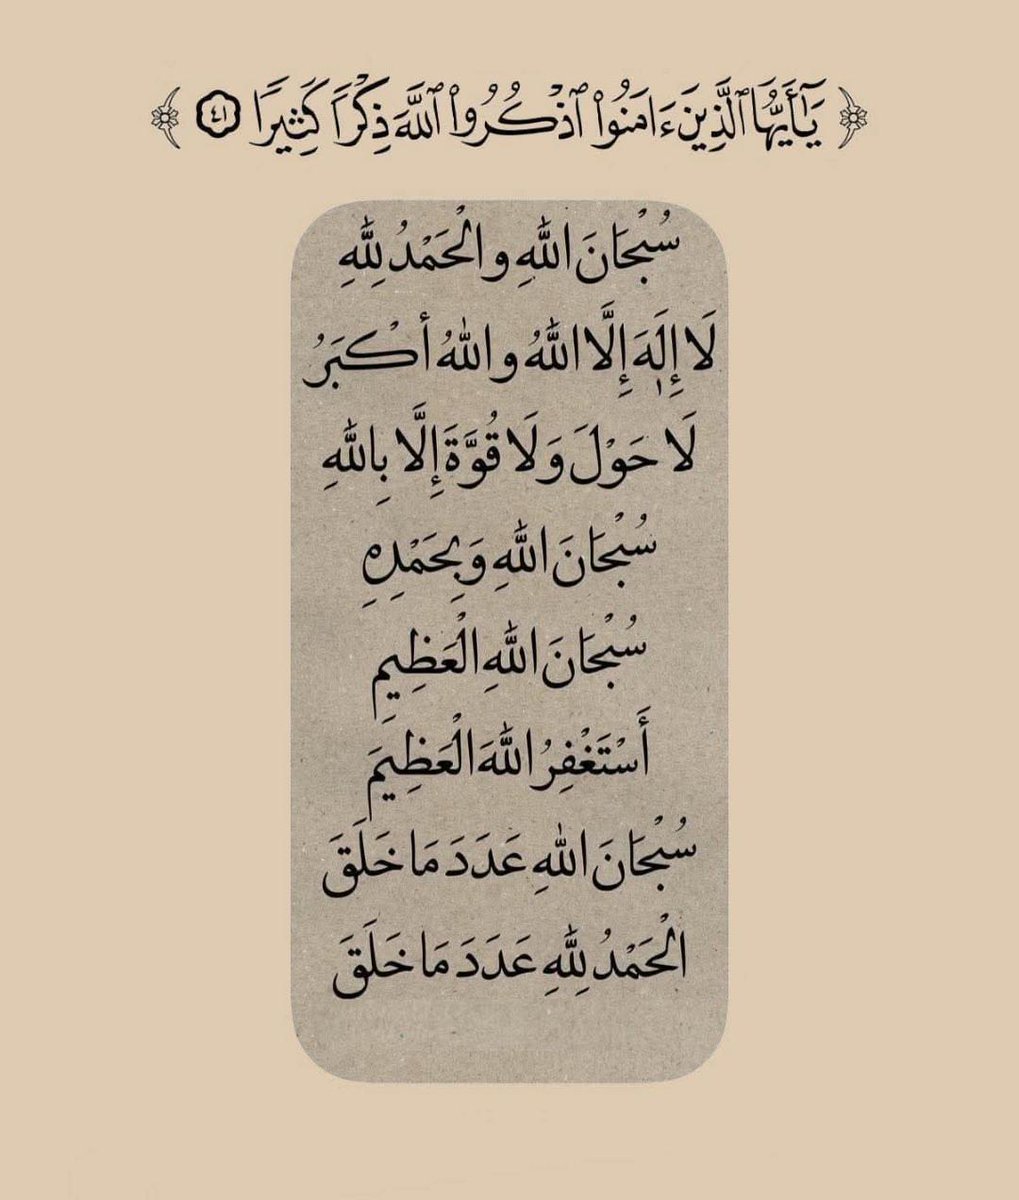 ﴿ يَٰٓأَيُّهَا ٱلَّذِينَ ءَامَنُوا۟ ٱذْكُرُوا۟ ٱللَّهَ ذِكْرًا كَثِيرًا ٤١ ﴾
سُبْحَانَ اللّٰهِ والْحَمْدُ لِلّٰهِ
لَا إِلَٰهَ إِلَّا اللّٰهُ واللّٰهُ أكْبَرُ
لَا حَوْلَ وَلَا قُوَّةَ إِلَّا بِاللّٰهِ
سُبْحَانَ اللّٰهِ وَبِحَمْدِهِ
سُبْحَانَ اللّٰهِ الْعَظِيمِ
أَسْتَغْفِرُ اللّٰهَ الْعَظِيمَ
سُبْحَانَ اللّٰهِ عَدَدَ مَا خَلَقَ
الْحَمْدُ لِلّٰهِ عَدَدَ مَا خَلَقَ